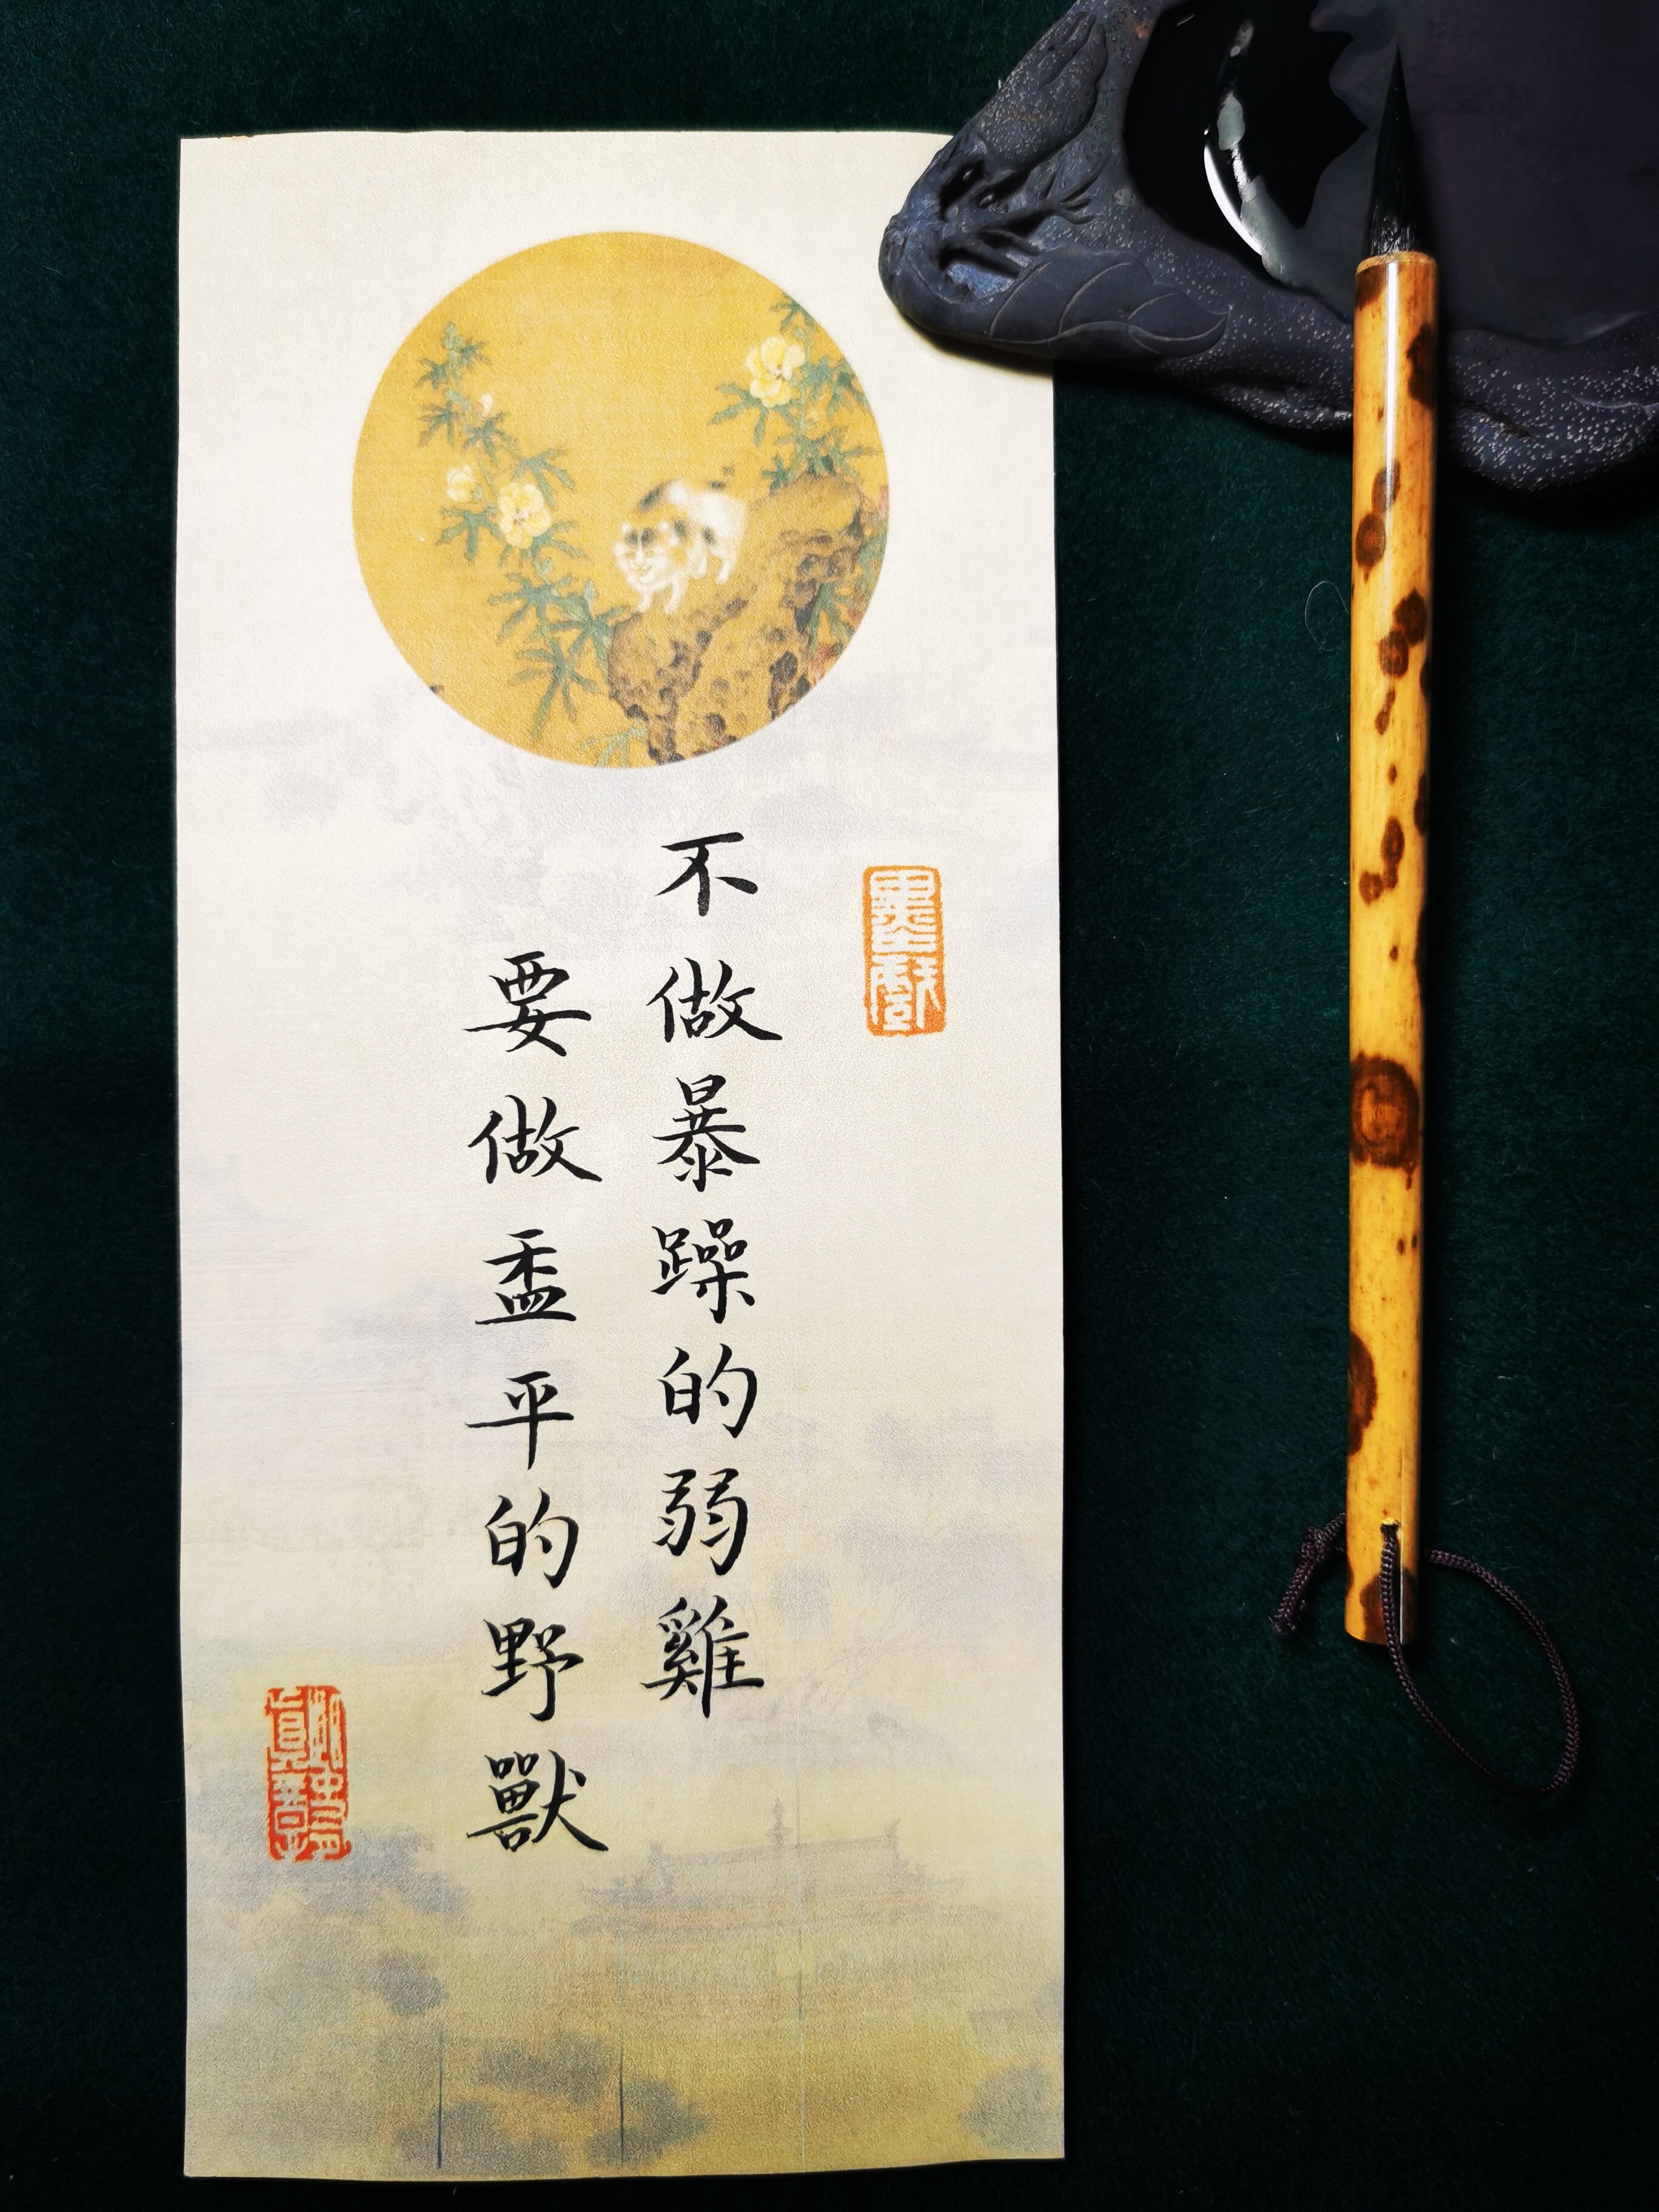 墨戲
不做暴躁的弱雞
要做盉平的野獸